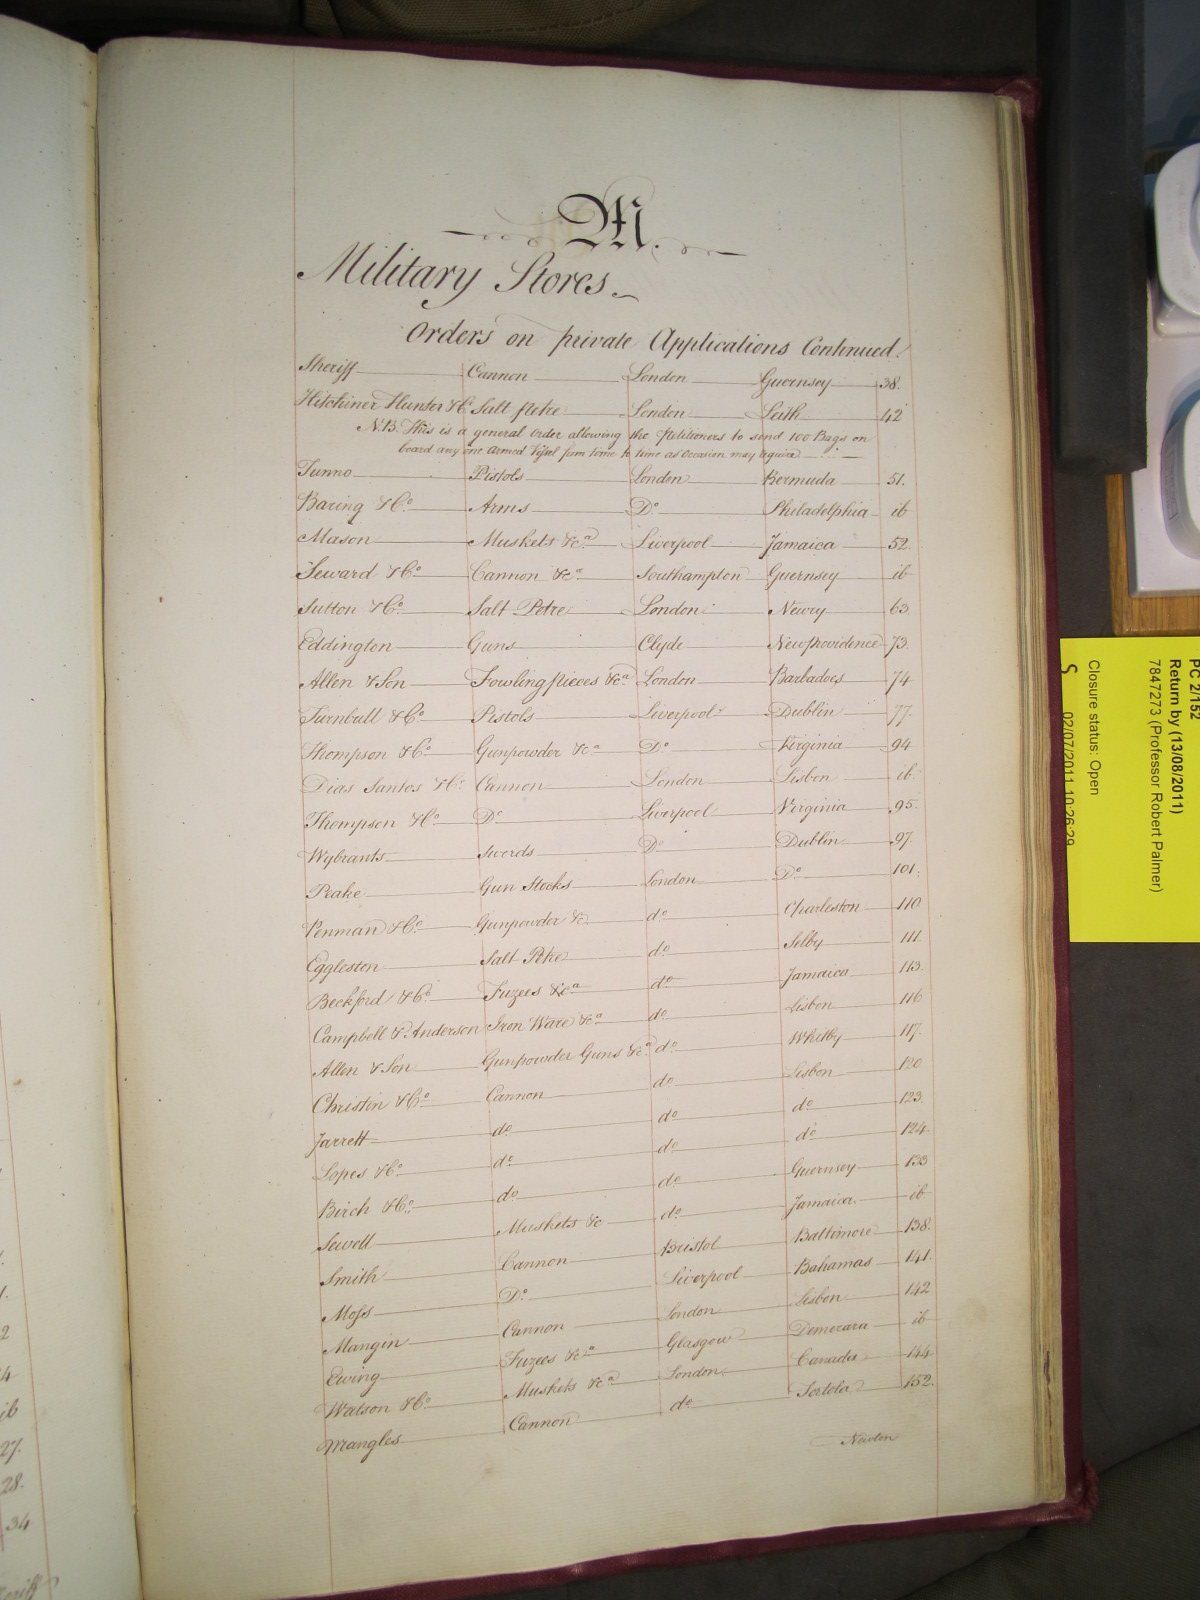 M.
Military Stores.
Orders on private Applications Continued.
Sheriff Cannon London Guernsey 38.
Hitchiner Hunter & Co Salt Petre London Leith 42
N.B. This is a general Order allowing the Petitioners to send 100 Bags on
board any one Armed Vessel from time to time as Occasion may require
Tunno Pistols London Bermuda 51.
Baring & Co Arms Do Philadelphia ib
Mason Muskets &ca Liverpool Jamaica 52.
Seward & Co Cannon &ca Southampton Guernsey ib
Sutton & Co Salt Petre London Newry 63.
Eddington Guns Clyde New Providence 73.
Allen & Son Fowling pieces &ca London Barbadoes 74
Turnbull & Co Pistols Liverpool Dublin 77.
Thompson & Co Gunpowder &ca Do Virginia 94
Dias Santos & Co Cannon London Lisbon ib.
Thompson & Co Do Liverpool Virginia 95.
Wybrants Swords Do Dublin 97.
Peake Gun Stocks London Do 101.
Penman & Co Gunpowder &c do Charleston 110.
Eggleston Salt Petre do Selby 111.
Beckford & Co Fuzees &ca do Jamaica 113.
Campbell & Anderson Iron Ware &ca do Lisbon 116
Allen & Son Gunpowder Guns &ca do Whitby 117.
Christin & Co Cannon do Lisbon 120
Jarrett do do do 123.
Lopes & Co do do do 124.
Birch & Co do do Guernsey 133
Sewell Muskets &c do Jamaica ib
Smith Cannon Bristol Baltimore 138.
Moss Do Liverpool Bahamas 141.
Mangin Cannon London Lisbon 142
Ewing Fuzees &ca Glasgow Demerara ib
Watson & Co Muskets &ca London Canada 144
Mangles Cannon do Tortola 152.
Newton
2
ib
27.
28.
34
PC 2/152
Return by (13/08/2011)
7847273 (Professor Robert Palmer)
Closure status: Open
S 02/07/2011 10:26:29